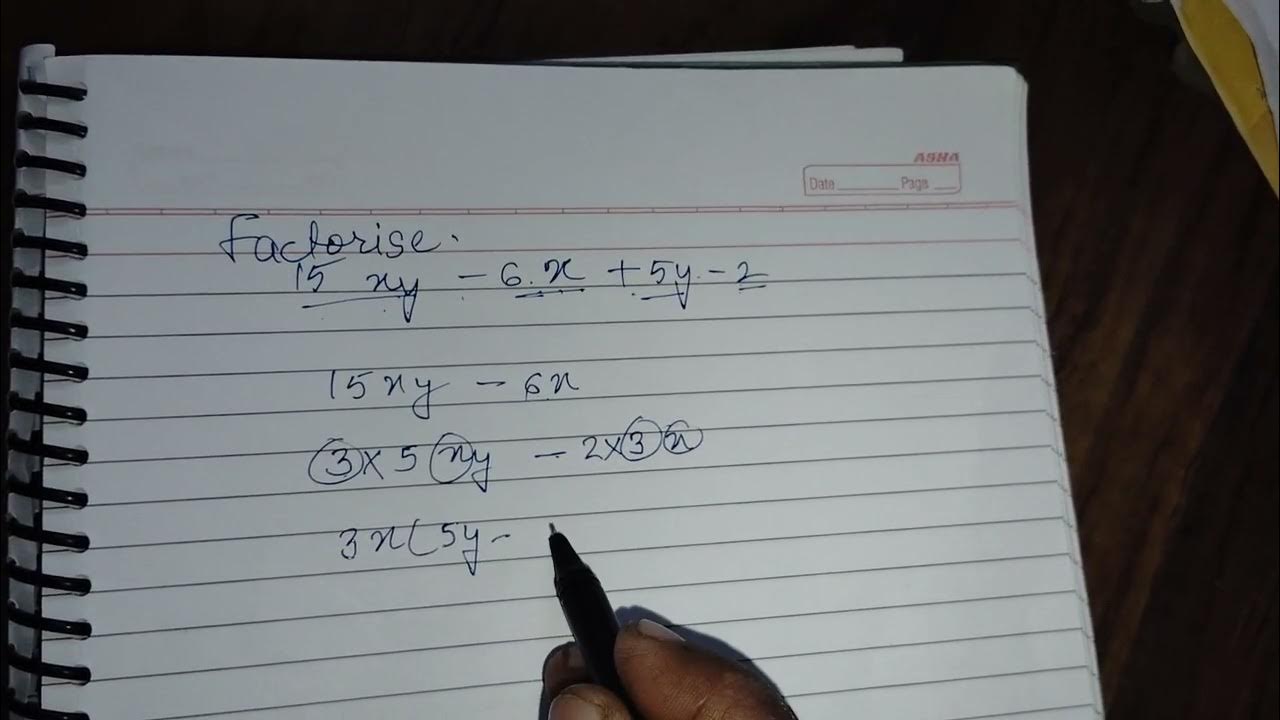 ASHA
Date Page
factorise.
15 xy - 6.x + 5y - 2
15xy - 6x
3 x 5 xy - 2 x 3 x
3x(5y -